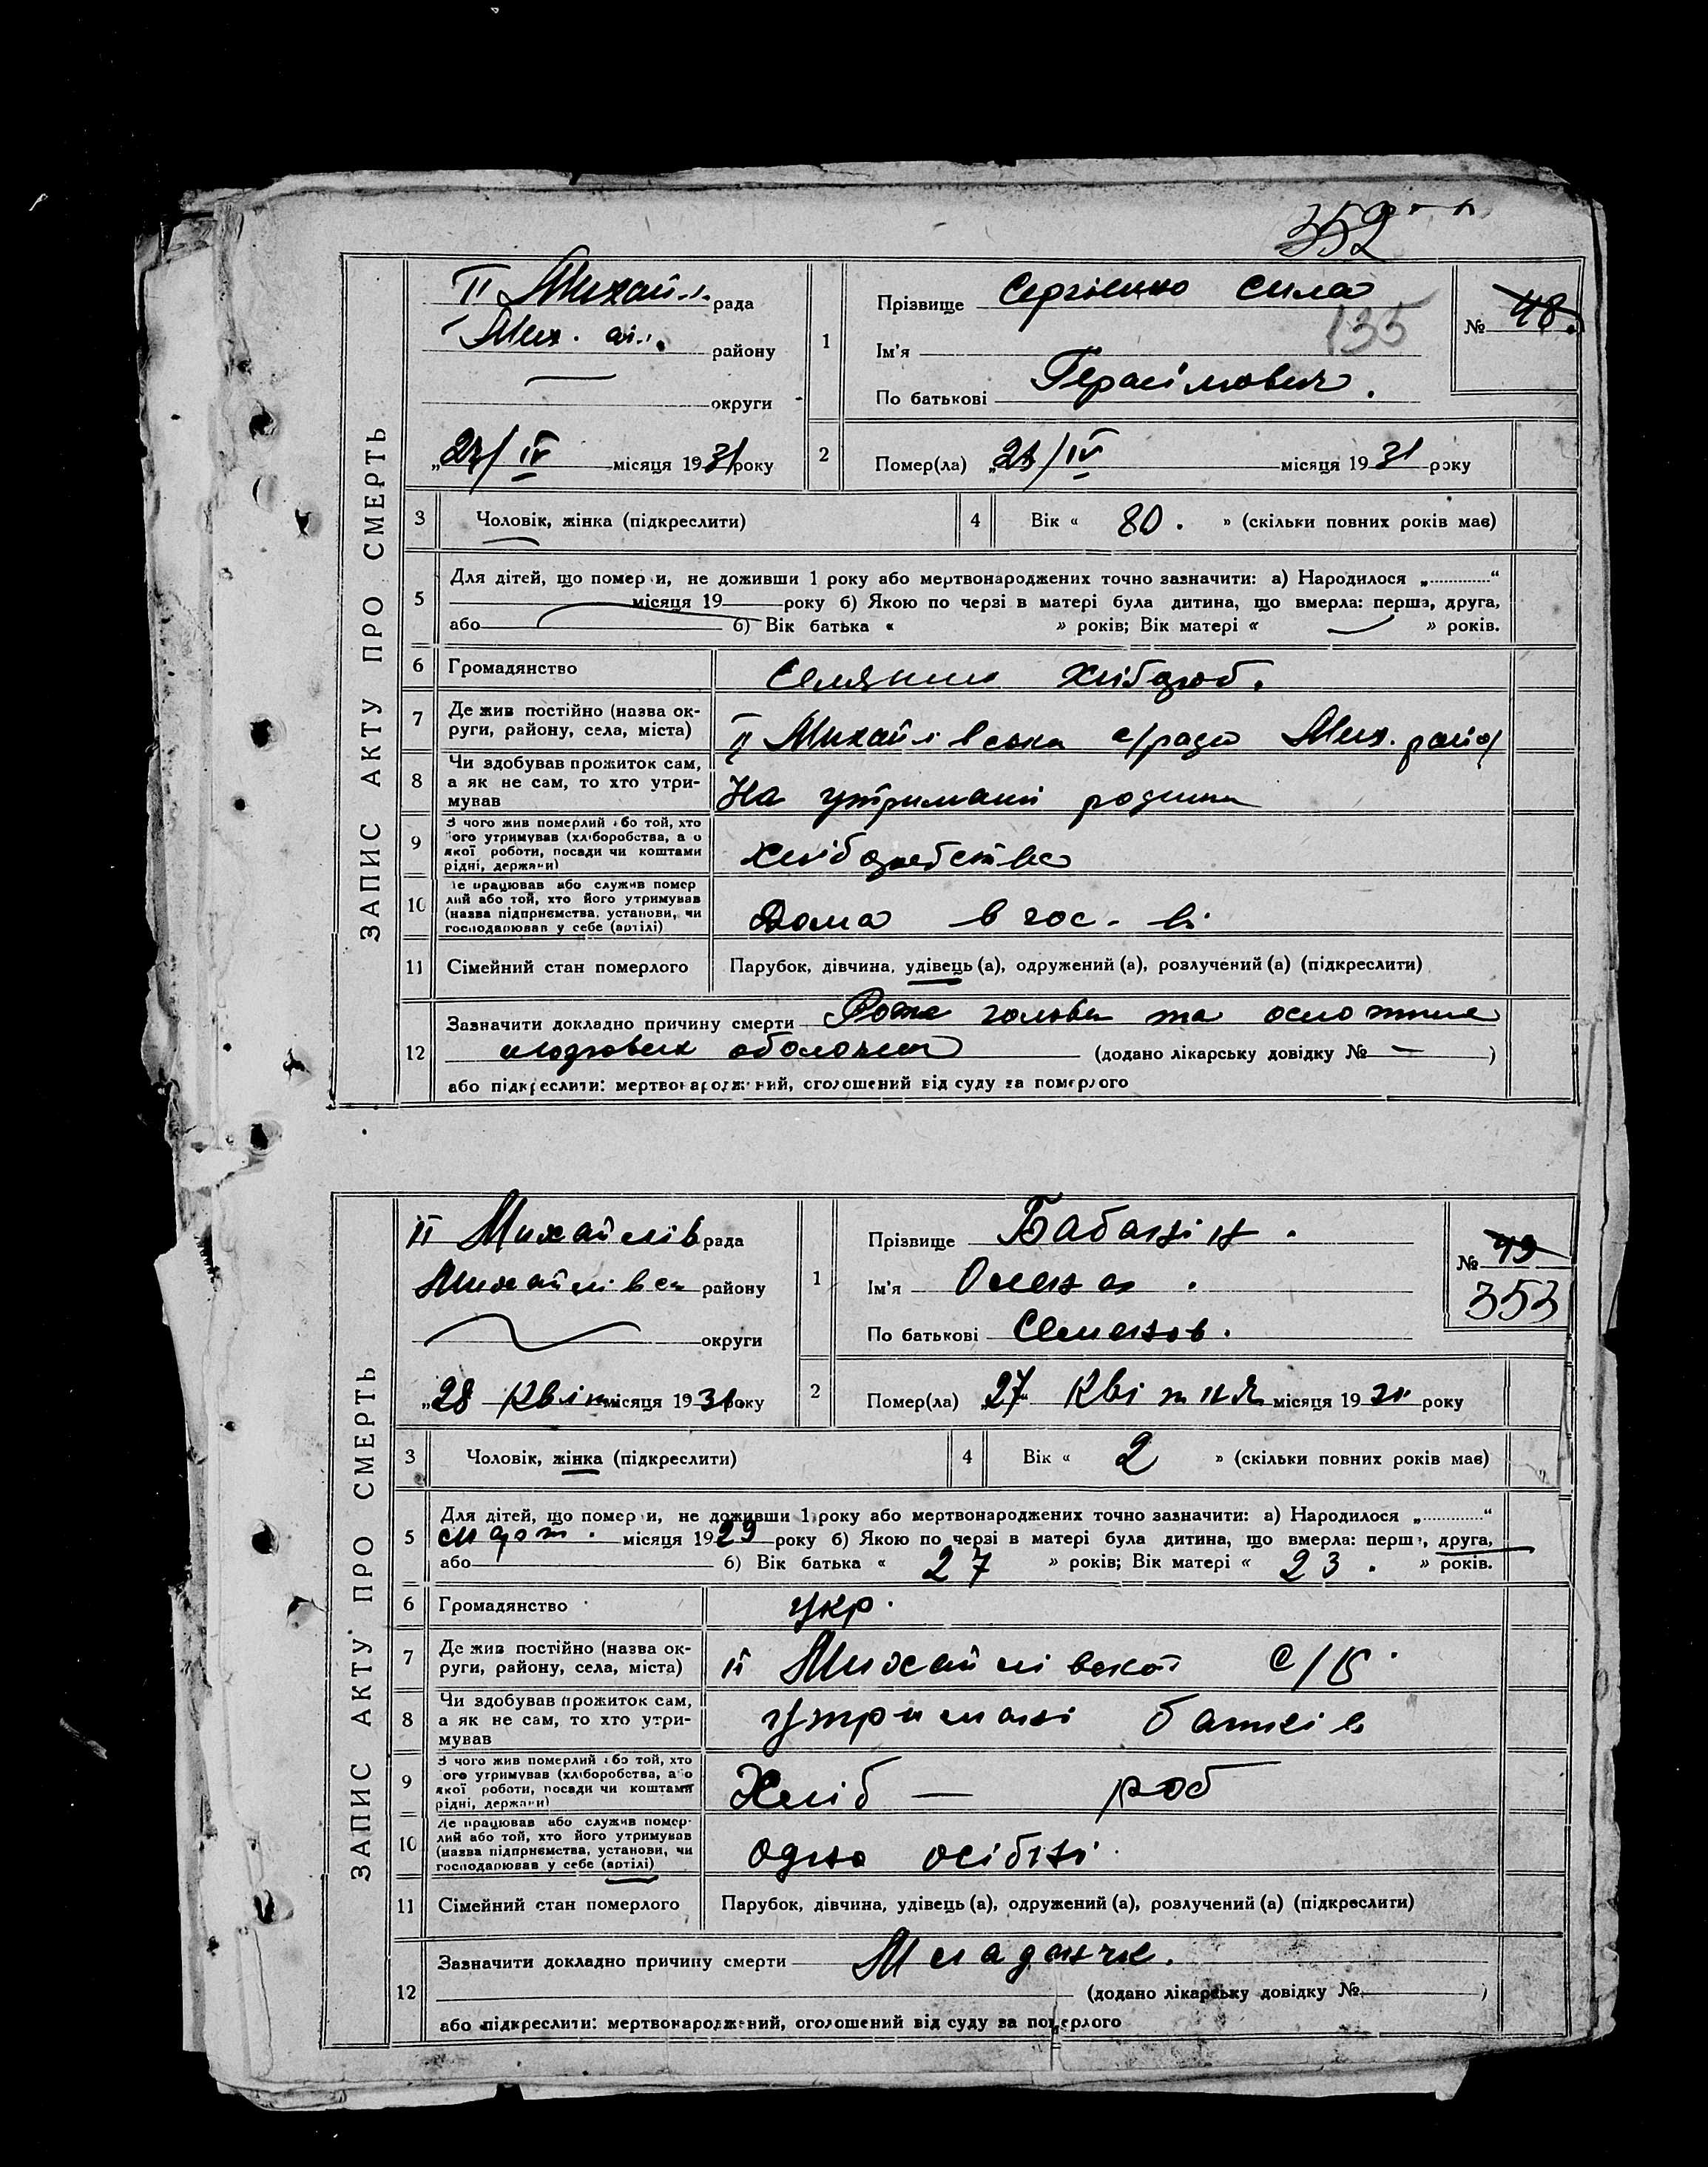 352
ЗАПИС АКТУ ПРО СМЕРТЬ
II Михай... рада
Мих. района району
округи
1
Прізвище Сергієнко Сила
135
Ім'я
По батькові Герасімович.
№ 48.
„27/IV місяця 1931 року
2
Помер(ла) „23/IV місяця 1931 року
3 Чоловік, жінка (підкреслити)
4 Вік « 80. » (скільки повних років має)
5 Для дітей, що помер и, не доживши 1 року або мертвонароджених точно зазначити: а) Народилося „............“
місяця 19 року б) Якою по черзі в матері була дитина, що вмерла: перша, друга,
або б) Вік батька « » років; Вік матері « — » років.
6 Громадянство Селянин хлібороб.
7 Де жив постійно (назва округи, району, села, міста) II Михайлівська с/рада Мих. район
8 Чи здобував прожиток сам, а як не сам, то хто утримував На утримані родини
9 З чого жив померлий або той, хто його утримував (хліборобства, а о якої роботи, посади чи коштами рідні, держави) хліборобства
10 Де працював або служив померлий або той, хто його утримував (назва підприємства, установи, чи господарював у себе (артілі) Дома в гос-ві
11 Сімейний стан померлого Парубок, дівчина, удівець (а), одружений (а), розлучений (а) (підкреслити)
12 Зазначити докладно причину смерти Рожа голови та осложнив
мозгових оболочек (додано лікарську довідку № — )
або підкреслити: мертвонароджений, оголошений від суду за померлого
ЗАПИС АКТУ ПРО СМЕРТЬ
II Михайлів рада
Михайлівск району
округи
1
Прізвище Бабанін.
Ім'я Олена.
По батькові Семенов.
№ 49
353
„28 Квітн місяця 1931 року
2
Помер(ла) „27 Квітня місяця 1931 року
3 Чоловік, жінка (підкреслити)
4 Вік « 2 » (скільки повних років має)
5 Для дітей, що помер и, не доживши 1 року або мертвонароджених точно зазначити: а) Народилося „............“
март. місяця 1929 року б) Якою по черзі в матері була дитина, що вмерла: перш , друга,
або б) Вік батька « 27 » років; Вік матері « 23. » років.
6 Громадянство укр.
7 Де жив постійно (назва округи, району, села, міста) II Михайлівскої с/р.
8 Чи здобував прожиток сам, а як не сам, то хто утримував утримані батьків
9 З чого жив померлий або той, хто його утримував (хліборобства, або якої роботи, посади чи коштами рідні, держави) Хліб — роб
10 Де працював або служив померлий або той, хто його утримував (назва підприємства, установи, чи господарював у себе (артілі) одно осібні
11 Сімейний стан померлого Парубок, дівчина, удівець (а), одружений (а), розлучений (а) (підкреслити)
12 Зазначити докладно причину смерти Младенче.
(додано лікарську довідку № )
або підкреслити: мертвонароджений, оголошений від суду за померлого